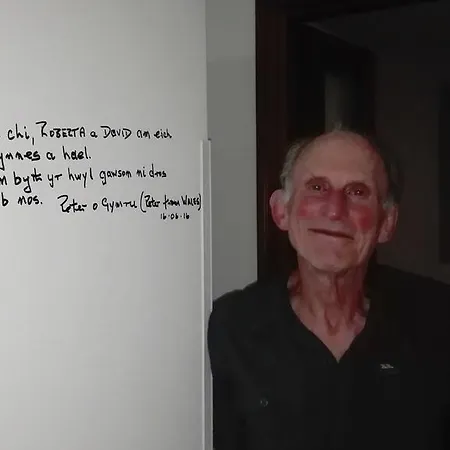 chi, ROBERTA a DAVID am eich
ynnes a hael.
byth yr hwyl gawson ni dros
nos. Peter o Gymru (Peter from WALES)
16·06·16